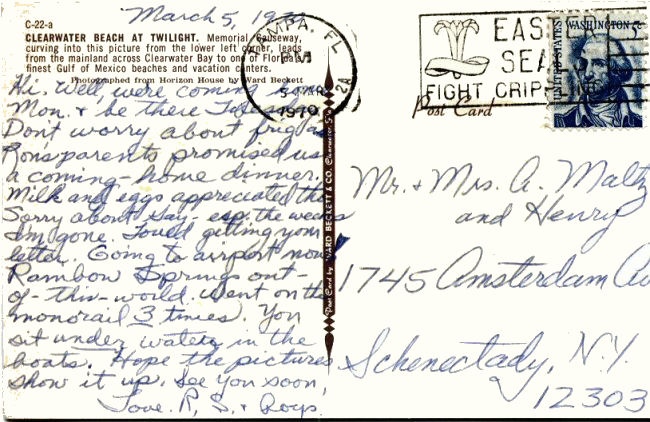 March 5, 19
C-22-a
CLEARWATER BEACH AT TWILIGHT. Memorial Causeway,
curving into this picture from the lower left corner, leads
from the mainland across Clearwater Bay to one of Florida's
finest Gulf of Mexico beaches and vacation centers.
Photographed from Horizon House by Ward Beckett
Hi. Well were coming
Mon. + be there Tues.
Don't worry about frig as
Ron's parents promised us
a coming-home dinner.
Milk and eggs appreciated tho
Sorry about Kay - esp. the
I'm gone. Loved getting your
letter. Going to airport now
Rainbow Springs out-
of-this-world. Went on the
monorail 3 times. You
sit under water in the
boats. Hope the pictures
show it up. See you soon,
Love. R, S. +
Post Card by WARD BECKETT & CO. Clearwater
TAMPA, FL
PM
5 MAR
1970
2A
EAS
SEA
FIGHT CRIP
UNITED STATES
WASHINGTON 5c
Post Card
Mr. + Mrs. A. Maltz
and Henry
1745 Amsterdam Av
Schenectady, N.Y.
12303